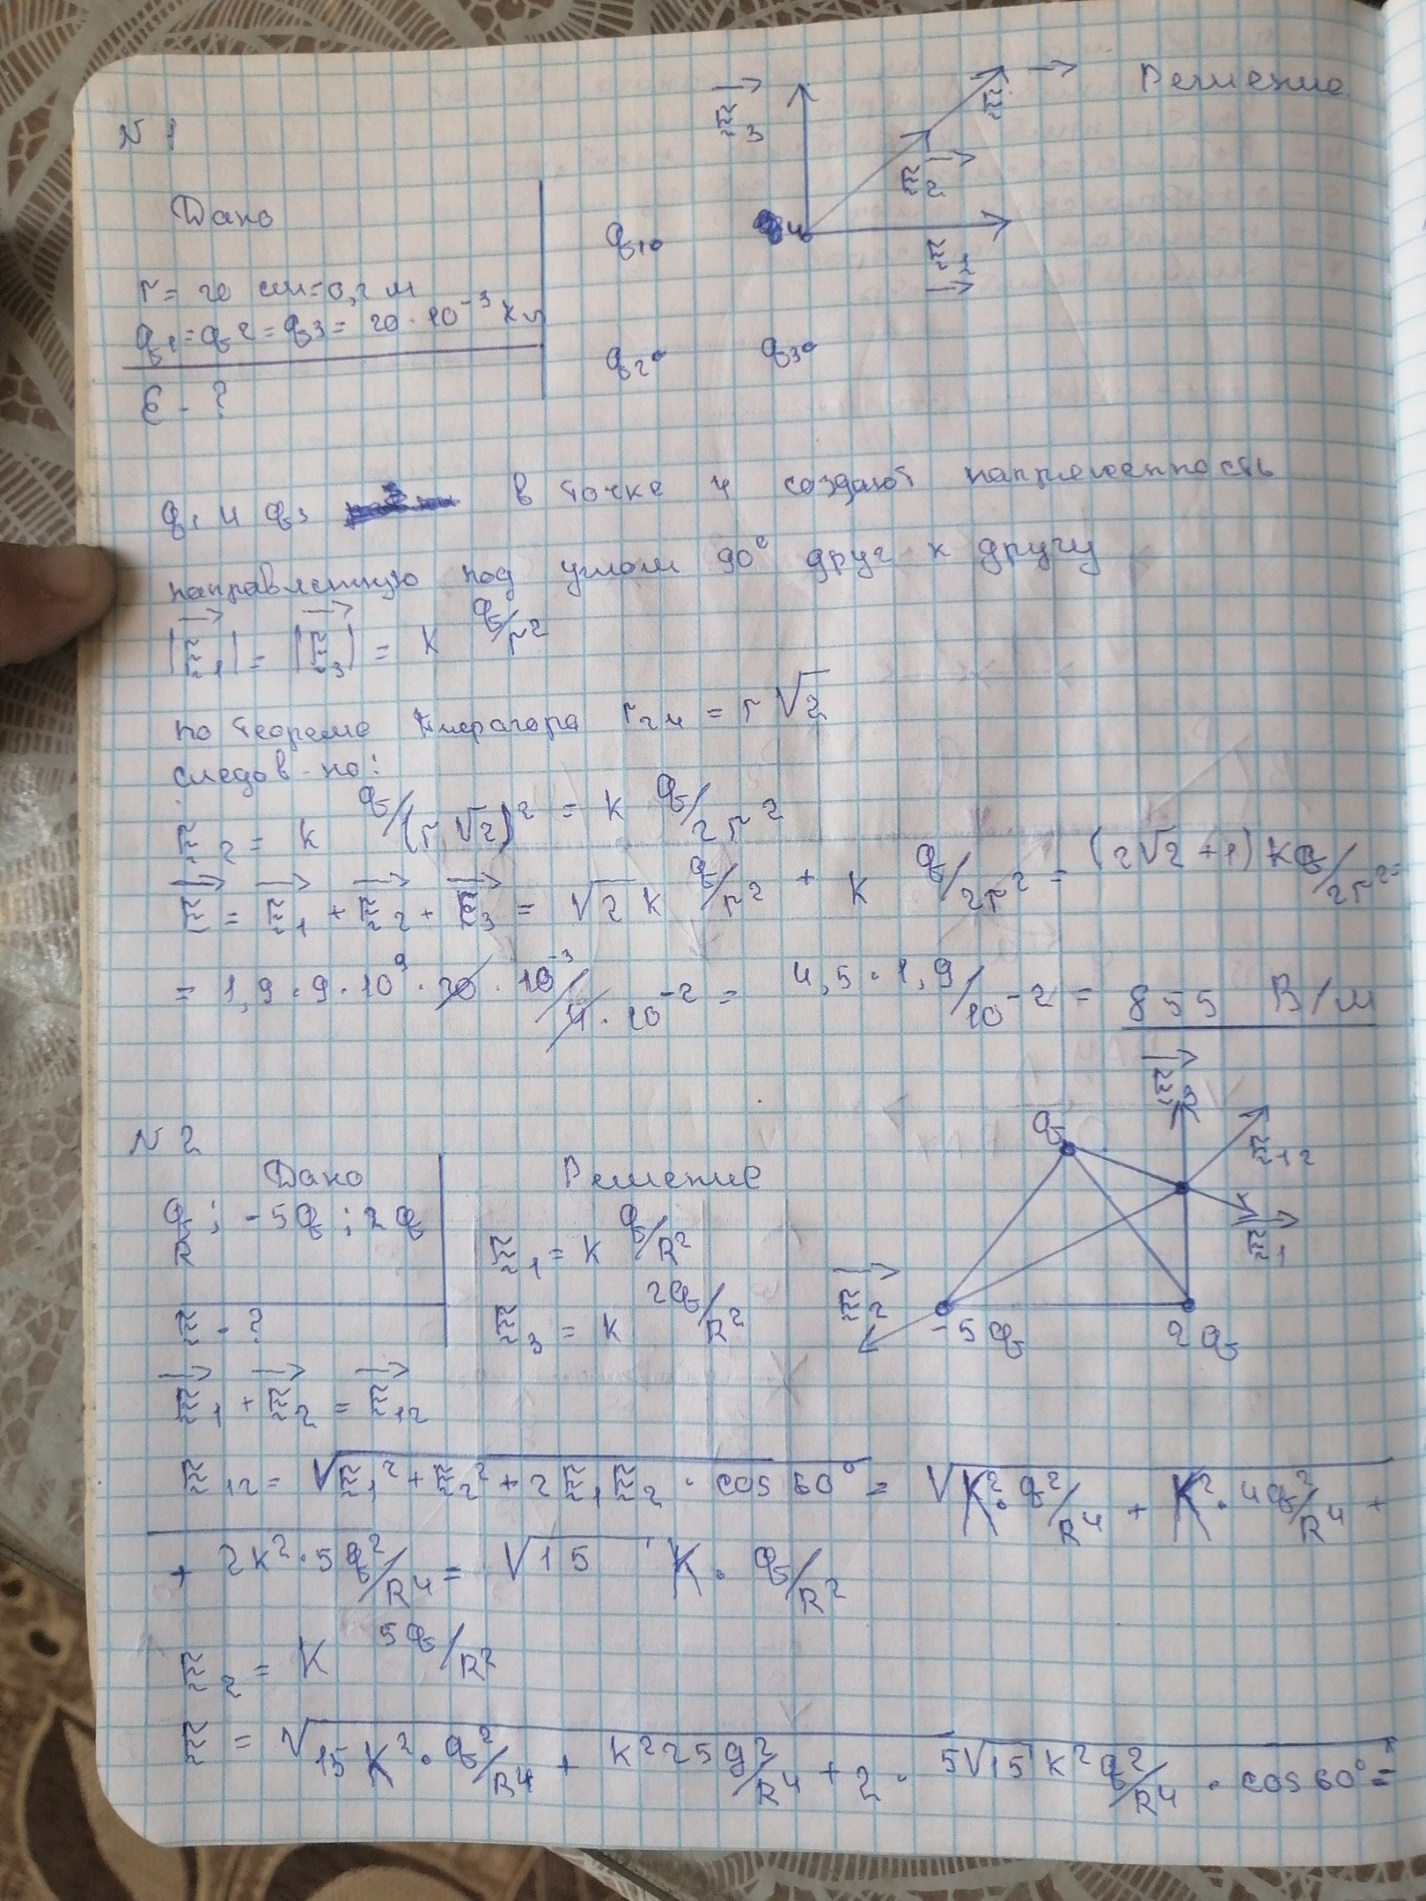 Решение
N 1
E₃
E
E₂
E₁
Дано
r = 20 см = 0,2 м
q₁ = q₂ = q₃ = 20 · 10⁻³ Кл
E - ?
q₁
q₂
q₃
q₁ и q₃ в точке 4 создают напряженность
направленную под углом 90° друг к другу
|E₁| = |E₃| = k q/r²
по теореме Пифагора r₂₄ = r √2
следов-но:
E₂ = k q/(r √2)² = k q/2r²
E = E₁ + E₂ + E₃ = √2 k q/r² + k q/2r² = (2√2 + 1) kq/2r² =
= 1,9 · 9 · 10⁹ · 20 · 10⁻³/4 · 10⁻² = 4,5 · 1,9/10⁻² = 855 В/м
N 2
Дано
Решение
q ; -5q ; 2q
R
E - ?
E₁ = k q/R²
E₃ = k 2q/R²
q
E₁₂
E₁
E₂
-5q
2q
E₁ + E₂ = E₁₂
E₁₂ = √E₁² + E₂² + 2E₁E₂ · cos 60° = √k² · q²/R⁴ + k² · 4q²/R⁴ +
+ 2k² · 5q²/R⁴ = √15 k · q/R²
E₂ = k 5q/R²
E = √15k² · q²/R⁴ + k²25q²/R⁴ + 2 · 5√15 k²q²/R⁴ · cos 60° =